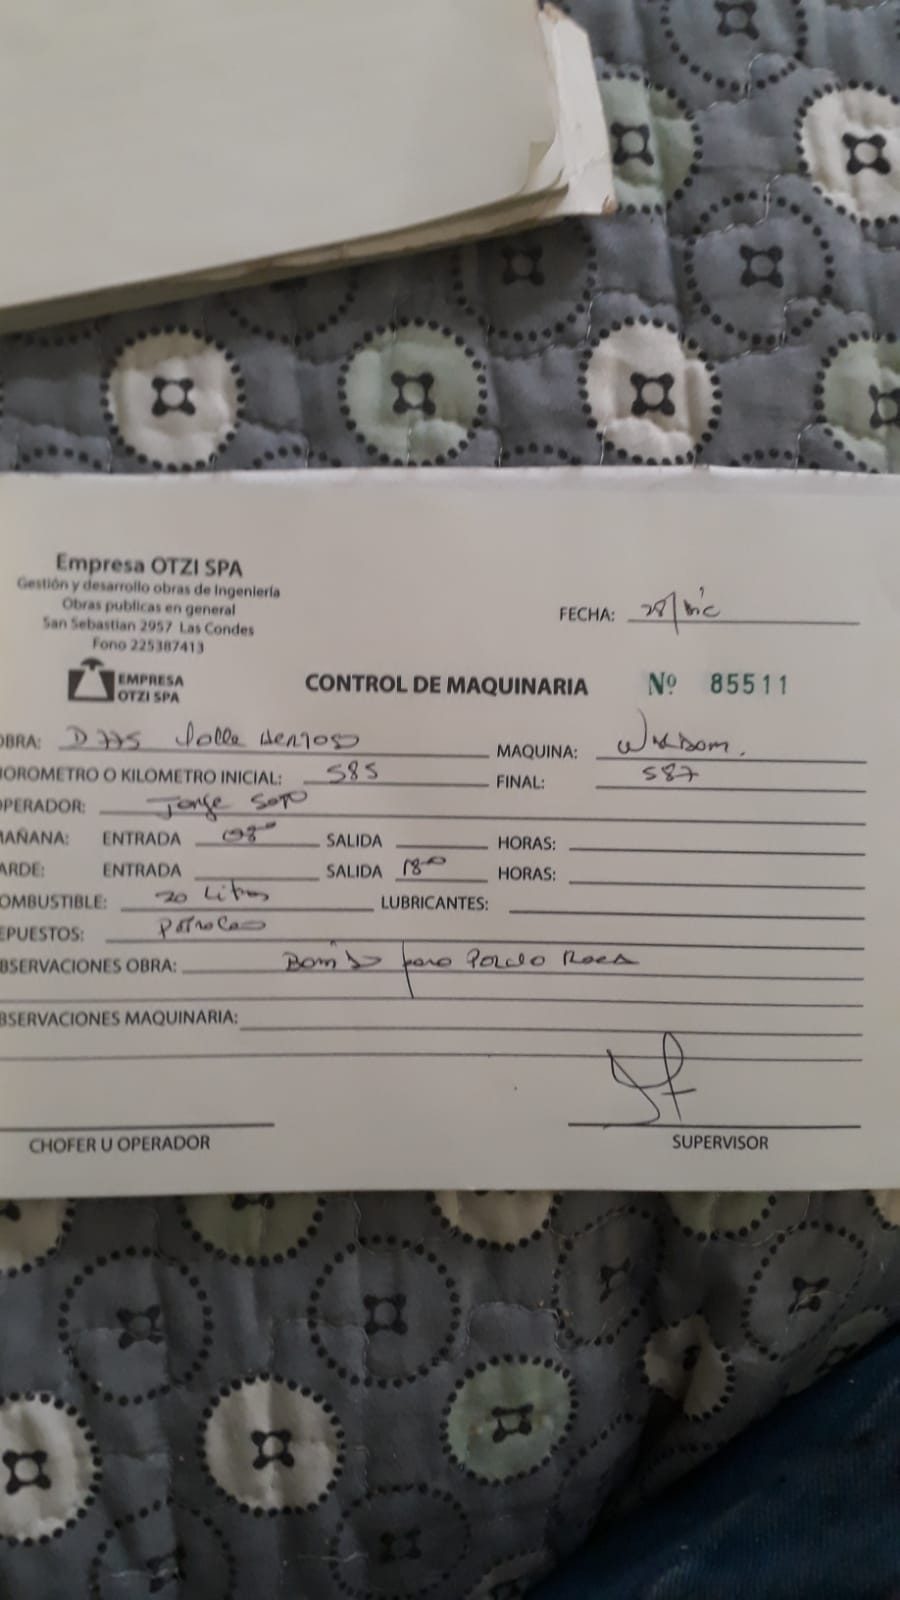 Empresa OTZI SPA
Gestión y desarrollo obras de Ingeniería
Obras publicas en general
San Sebastian 2957 Las Condes
Fono 225387413
FECHA: 28/Dic
EMPRESA
OTZI SPA
CONTROL DE MAQUINARIA Nº 85511
OBRA: D775 Valle Hermoso MAQUINA:
HOROMETRO O KILOMETRO INICIAL: 585 FINAL: 587
OPERADOR: Jorge Soto
MAÑANA: ENTRADA 08⁰⁰ SALIDA HORAS:
TARDE: ENTRADA SALIDA 18⁰⁰ HORAS:
COMBUSTIBLE: 20 Litros LUBRICANTES:
REPUESTOS: Petroleo
OBSERVACIONES OBRA: para
OBSERVACIONES MAQUINARIA:
CHOFER U OPERADOR SUPERVISOR